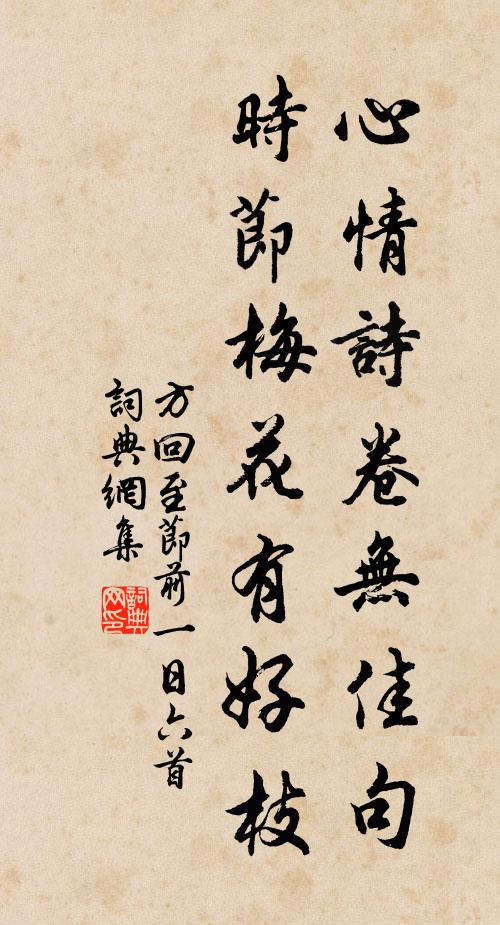 心情詩卷無佳句
時節梅花有好枝
方回至節前一日六首
詞典網集
詞典网印